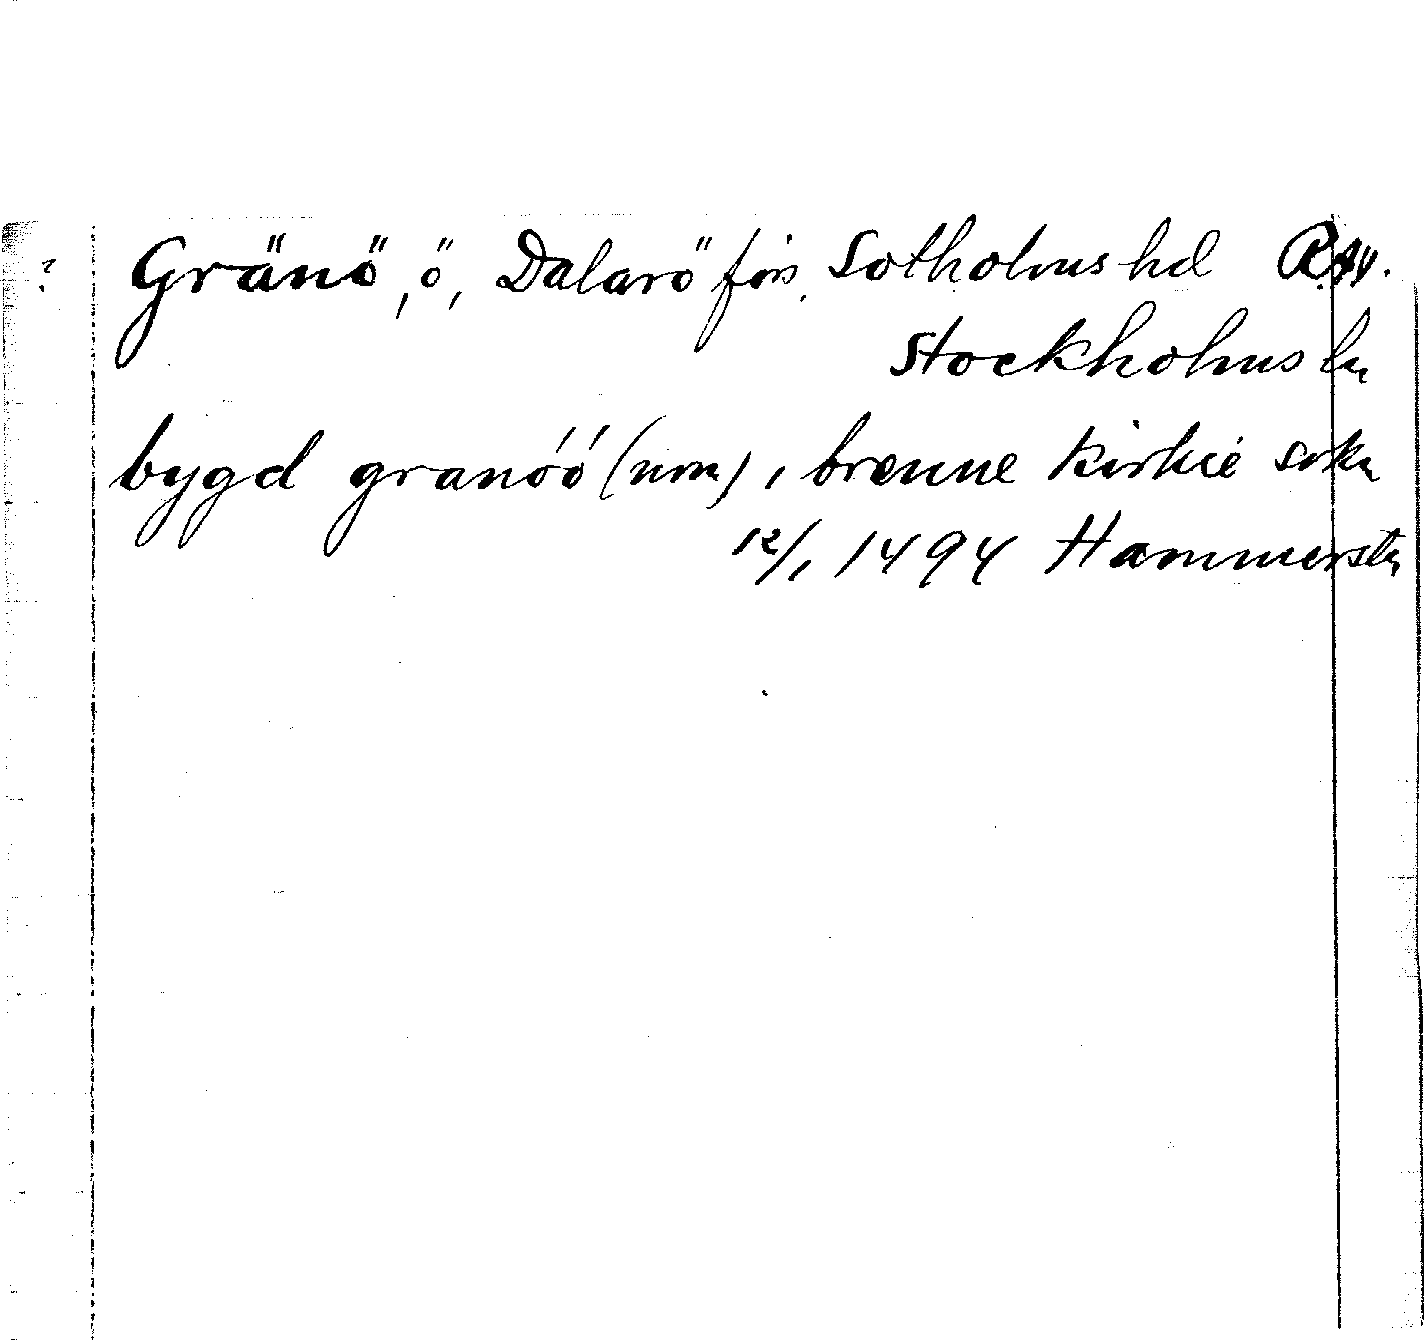 ? Gränö, ö, Dalarö förs. Sotholms hd
Stockholms ln
bygd granóó (nom), brenne kirkie sokn
12/1 1494 Hammersta